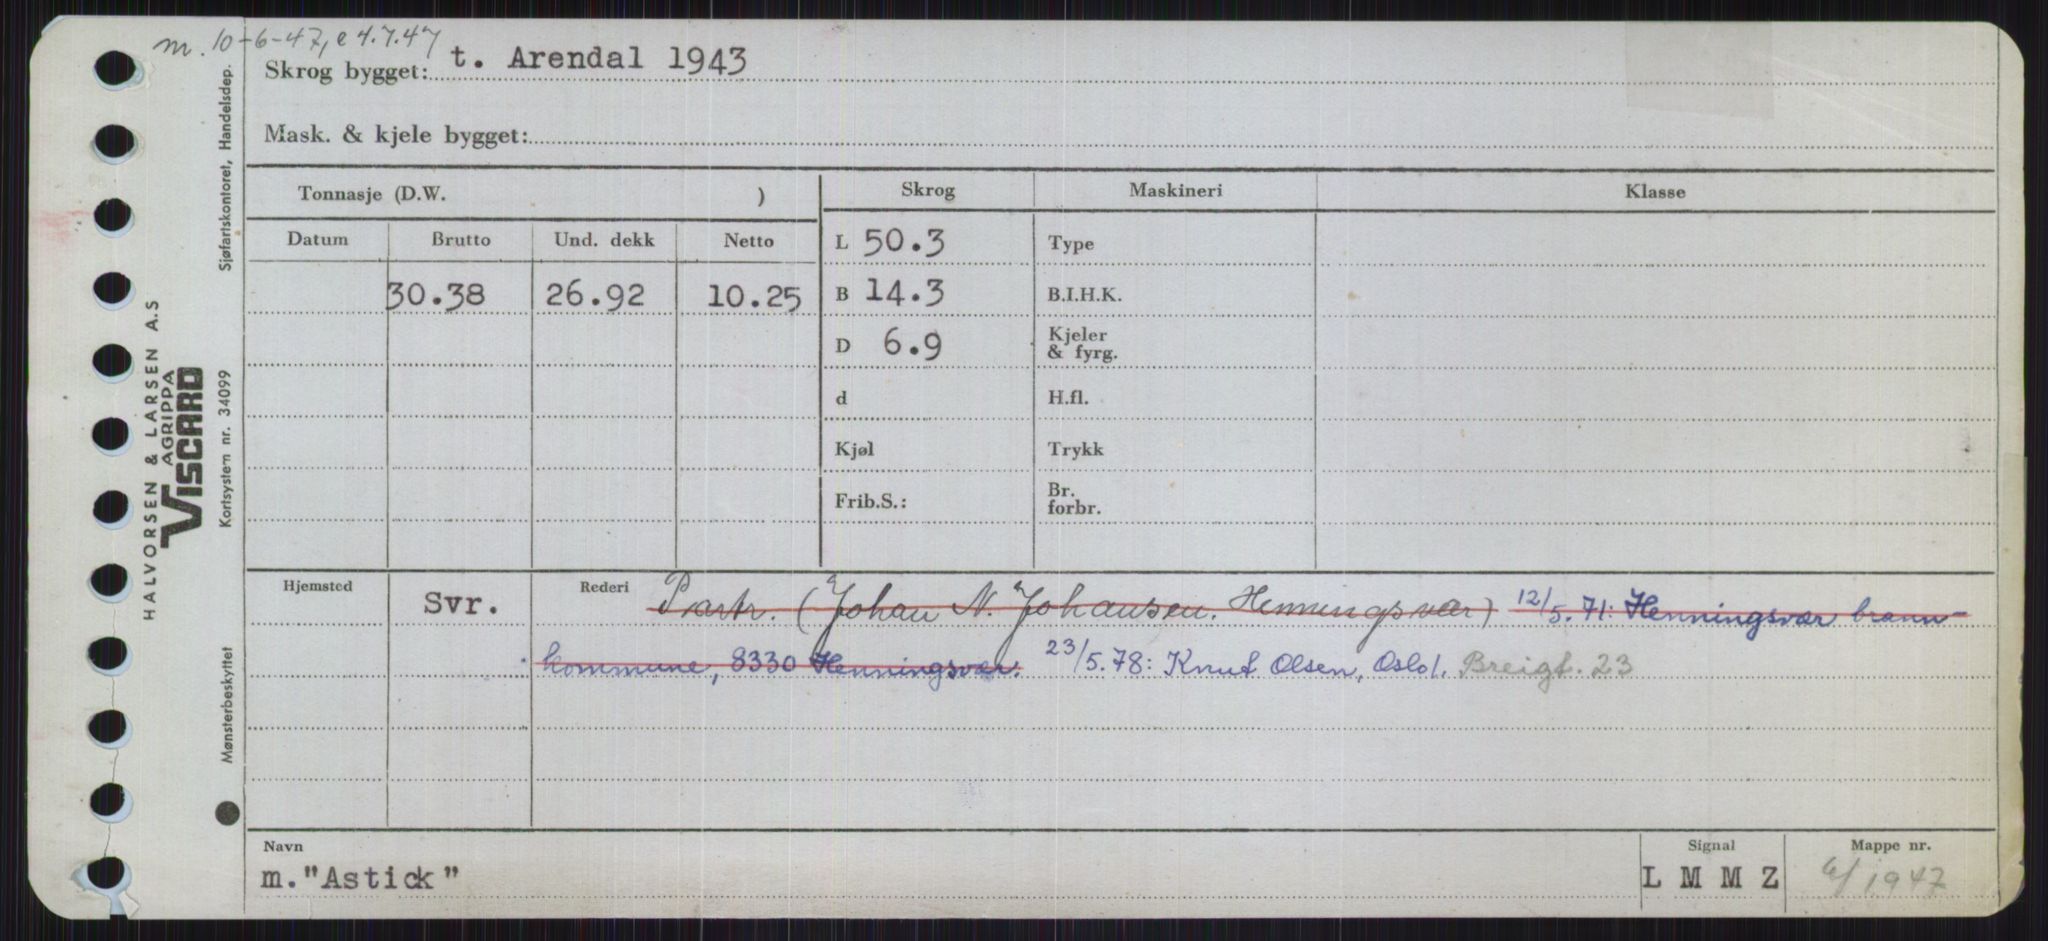 m. 10-6-47, e 4.7.47
Skrog bygget: t. Arendal 1943
Mask. & kjele bygget:
Tonnasje (D.W. )
Skrog
Maskineri
Klasse
Datum Brutto Und. dekk Netto
30.38 26.92 10.25
L 50.3
B 14.3
D 6.9
d
Kjøl
Frib.S.:
Type
B.I.H.K.
Kjeler
& fyrg.
H.fl.
Trykk
Br.
forbr.
Hjemsted Svr.
Rederi Partr. (Johan N. Johansen. Henningsvær) 12/5.71: Henningsvær brann-
kommune, 8330 Henningsvær. 23/5.78: Knut Olsen, Oslo 1. Breigt. 23
Navn
m."Astick"
Signal
L M M Z
Mappe nr.
6/1947
HALVORSEN & LARSEN A.S
AGRIPPA
VISCARD
Mønsterbeskyttet Kortsystem nr. 34099 Sjøfartskontoret, Handelsdep.